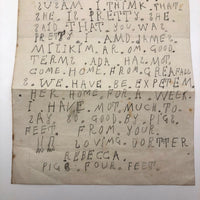 SUSAN. I THINK THAT
SHE IS PRETTY. SHE
SAID THAT YOU WAS
PRETTY. AND JAMES
MILIKIM. AR. OM. GOOD
TERMS ADA. HAS. NOT
COME. HOME. FROM. GREAFALL
S. WE. HAVE. BE. EXPETEM
HER. HOME. FOR. A. WEEK.
I HAVE NOT. MUCH. TO
SAY. SO. GOOD. BY. PIGS
FEET. FROM. YOUR.
LOVING. DORTTER
REBECCA.
PIGS FOUR FEET.